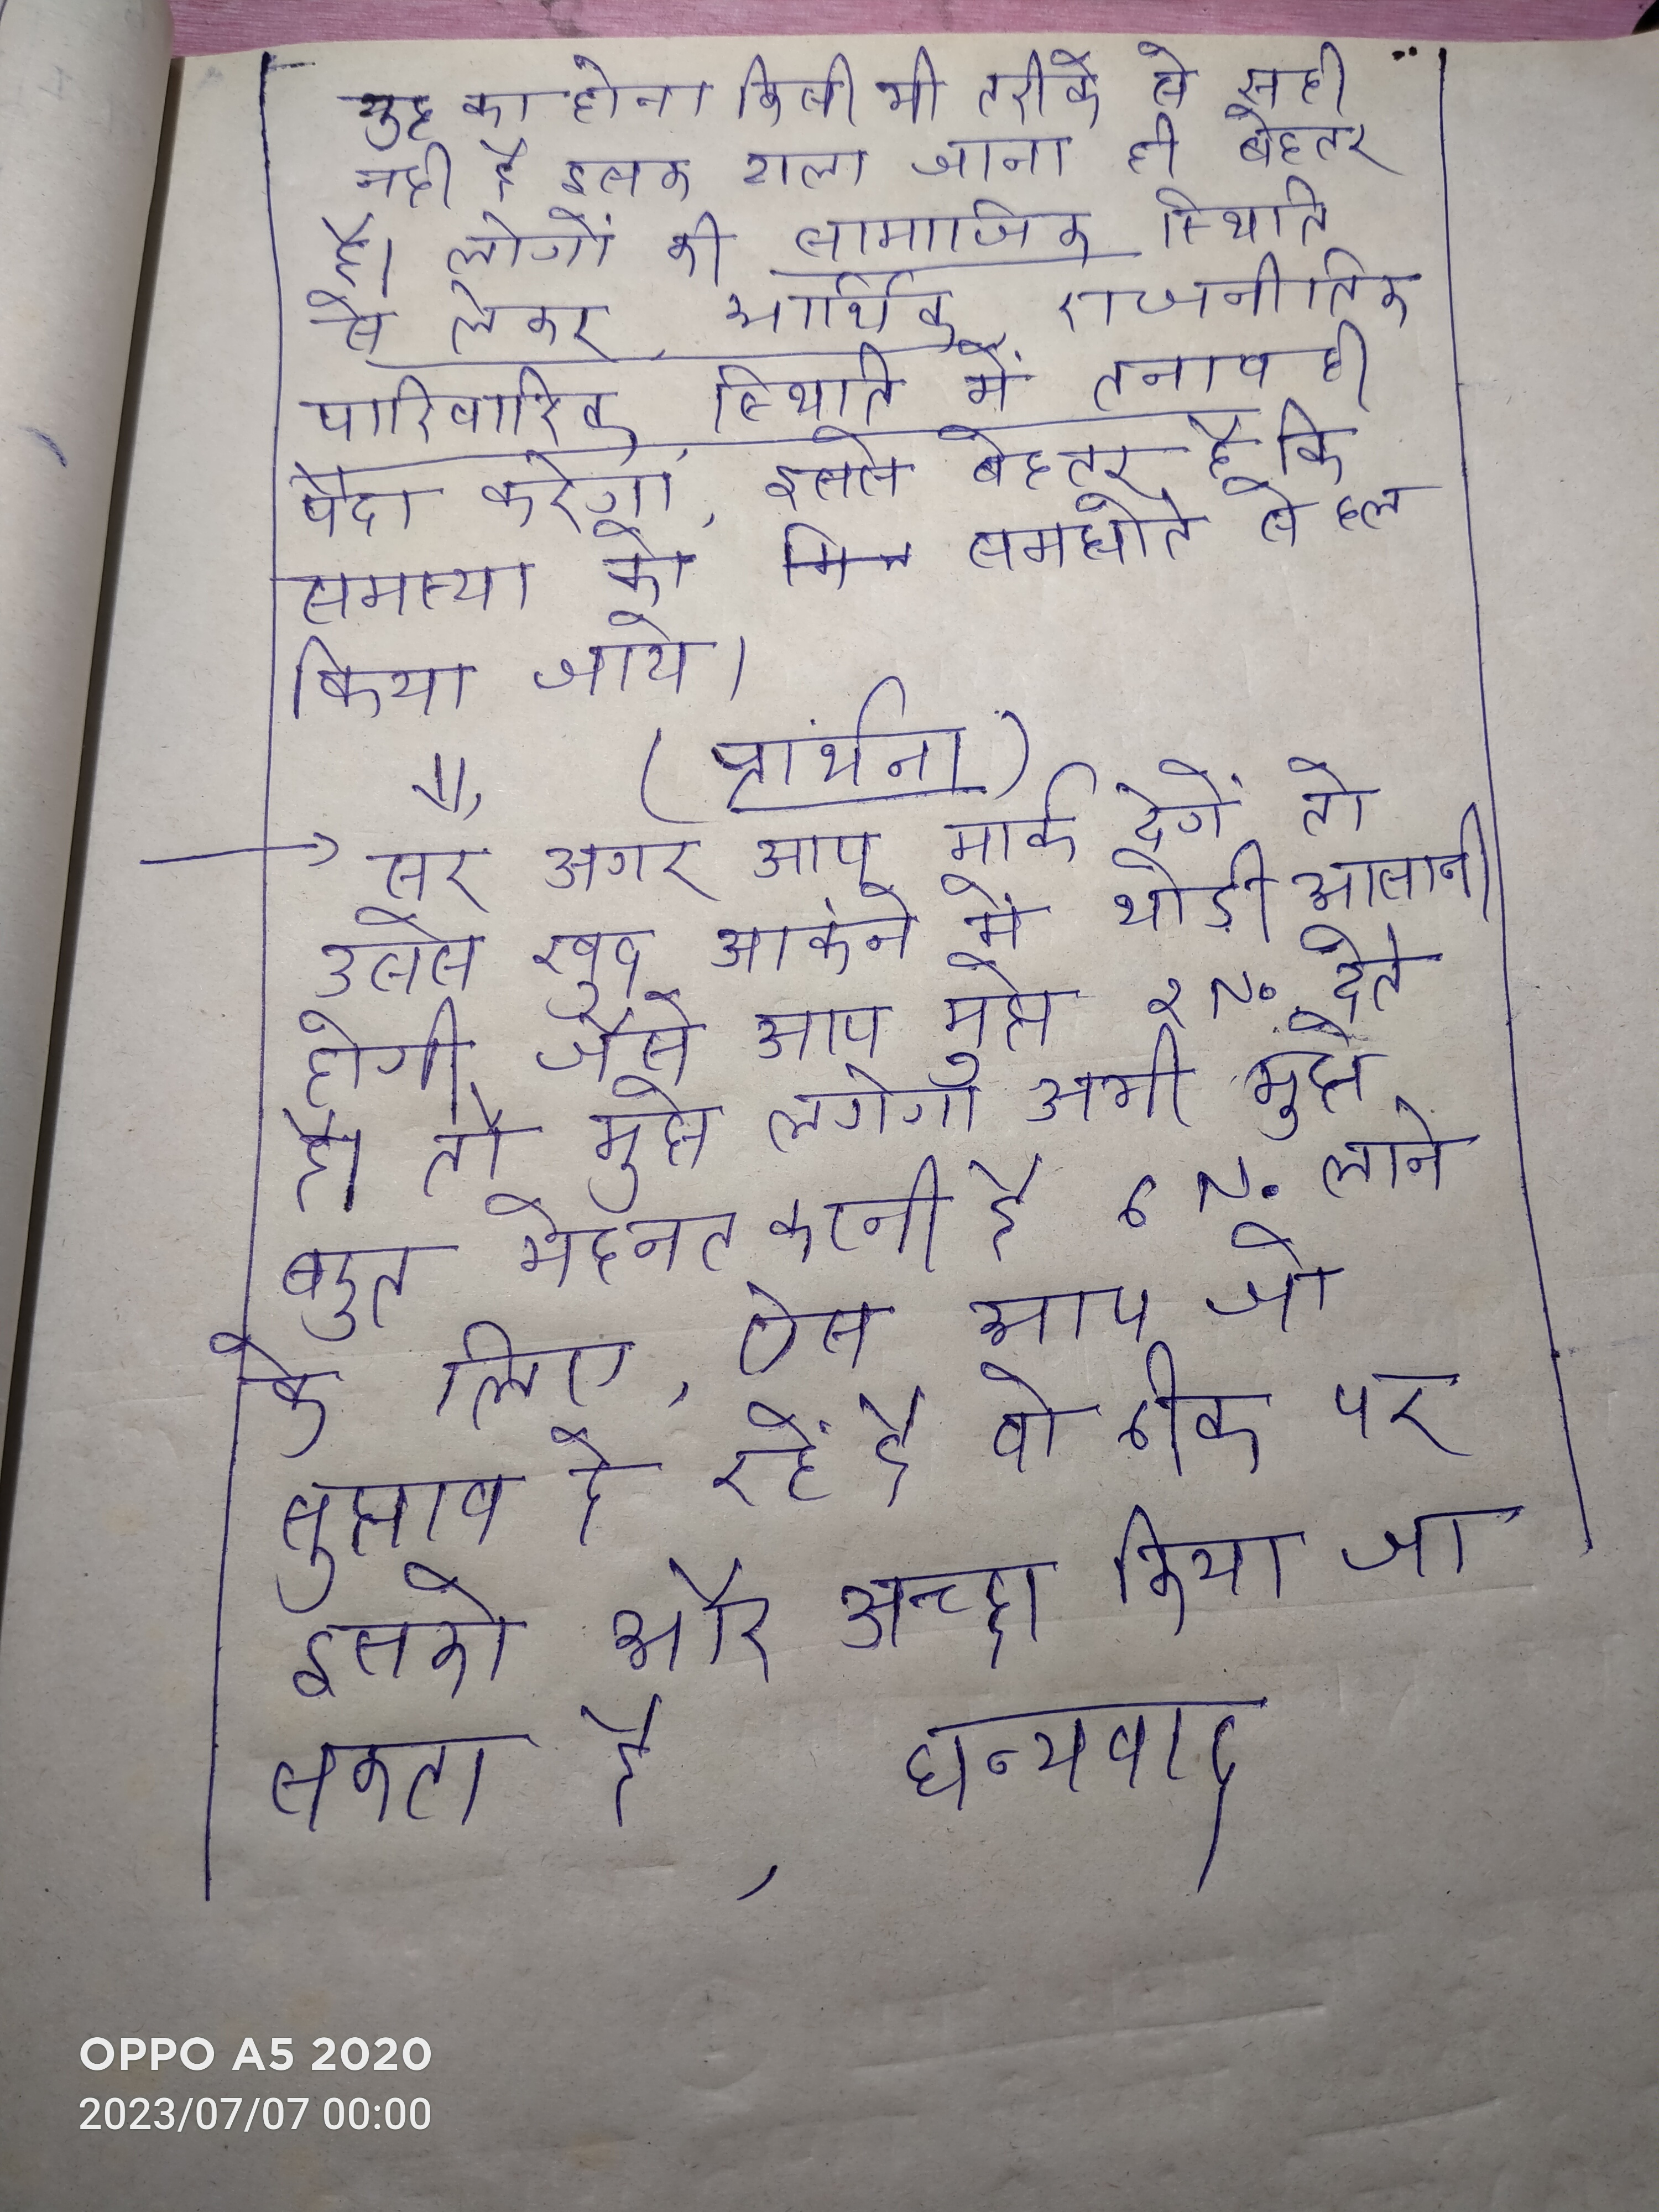 युद्ध का होना किसी भी तरीके से सही
नही है इसक टाला जाना ही बेहतर
है। लोगों की सामाजिक स्थिति
से लेकर, आर्थिक, राजनीतिक
पारिवारिक, स्थिति में तनाव ही
पैदा करेगा, इससे बेहतर है कि
समस्या को समझोते से हल
किया जाये।
(प्रार्थना)
→ सर अगर आप मार्क देगें तो
उससे खुद आकंने में थोड़ी आसानी
होगी, जैसे आप मुझे 2 No. देते
है। तो मुझे लगेगा अभी मुझे
बहुत मेहनत करनी है 6 No. लाने
के लिए, ऐस आप जो
सुझाव दे रहें है वो ठीक पर
इसको और अच्छा किया जा
सकता है, धन्यवाद
OPPO A5 2020
2023/07/07 00:00